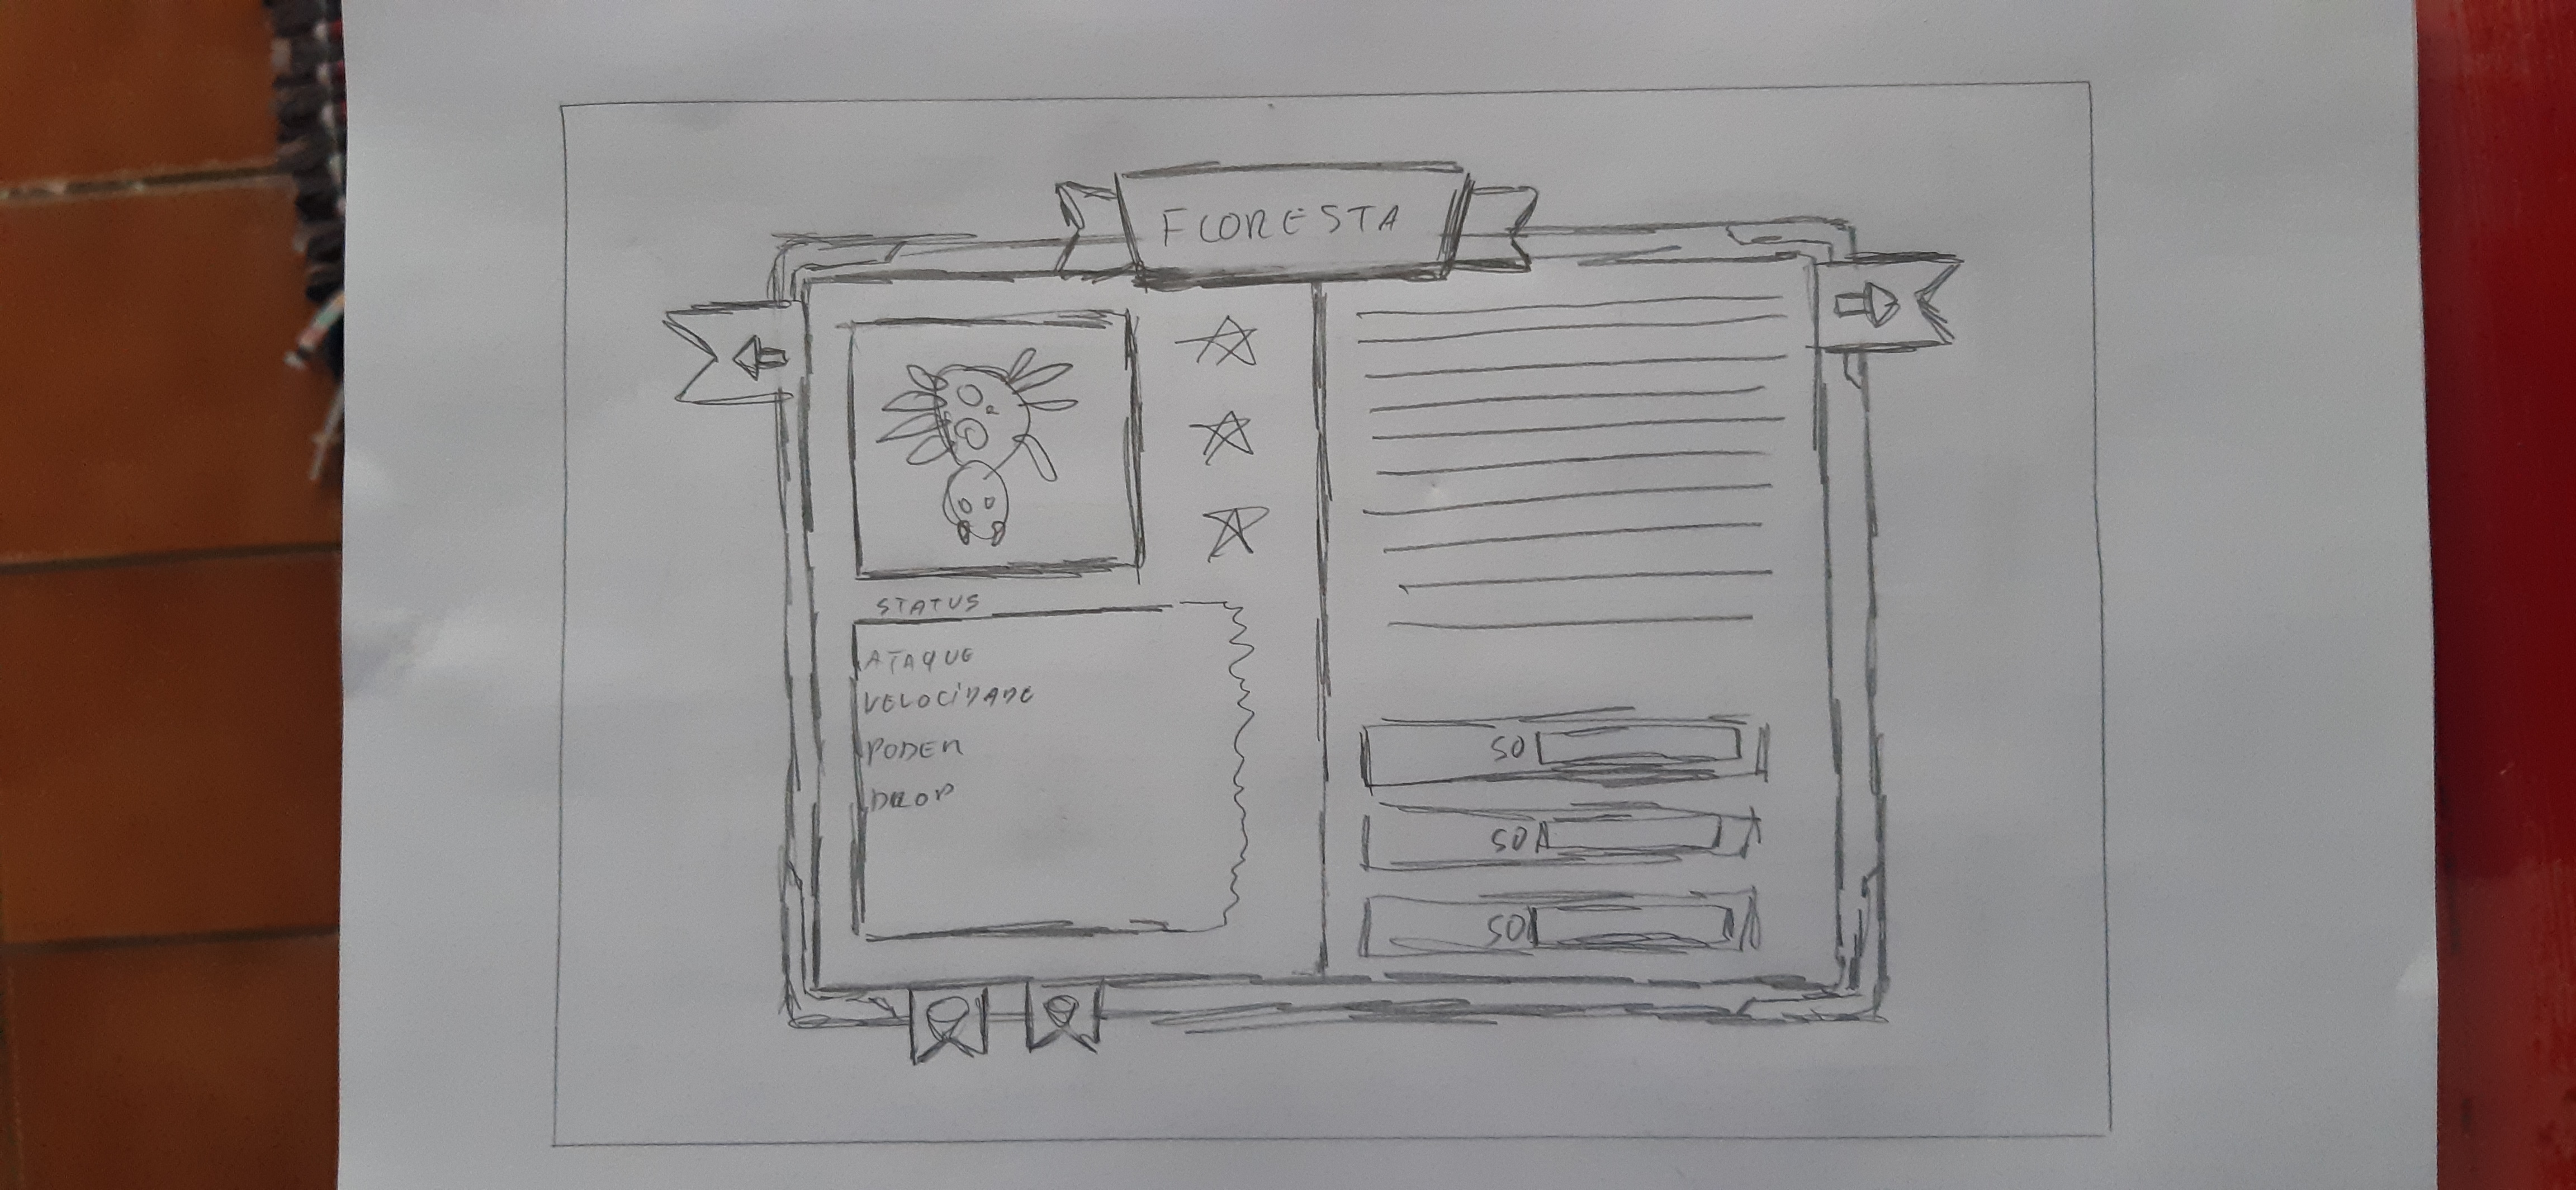 FLORESTA
STATUS
ATAQUE
VELOCIDADE
PODER
DROP
50
50
50